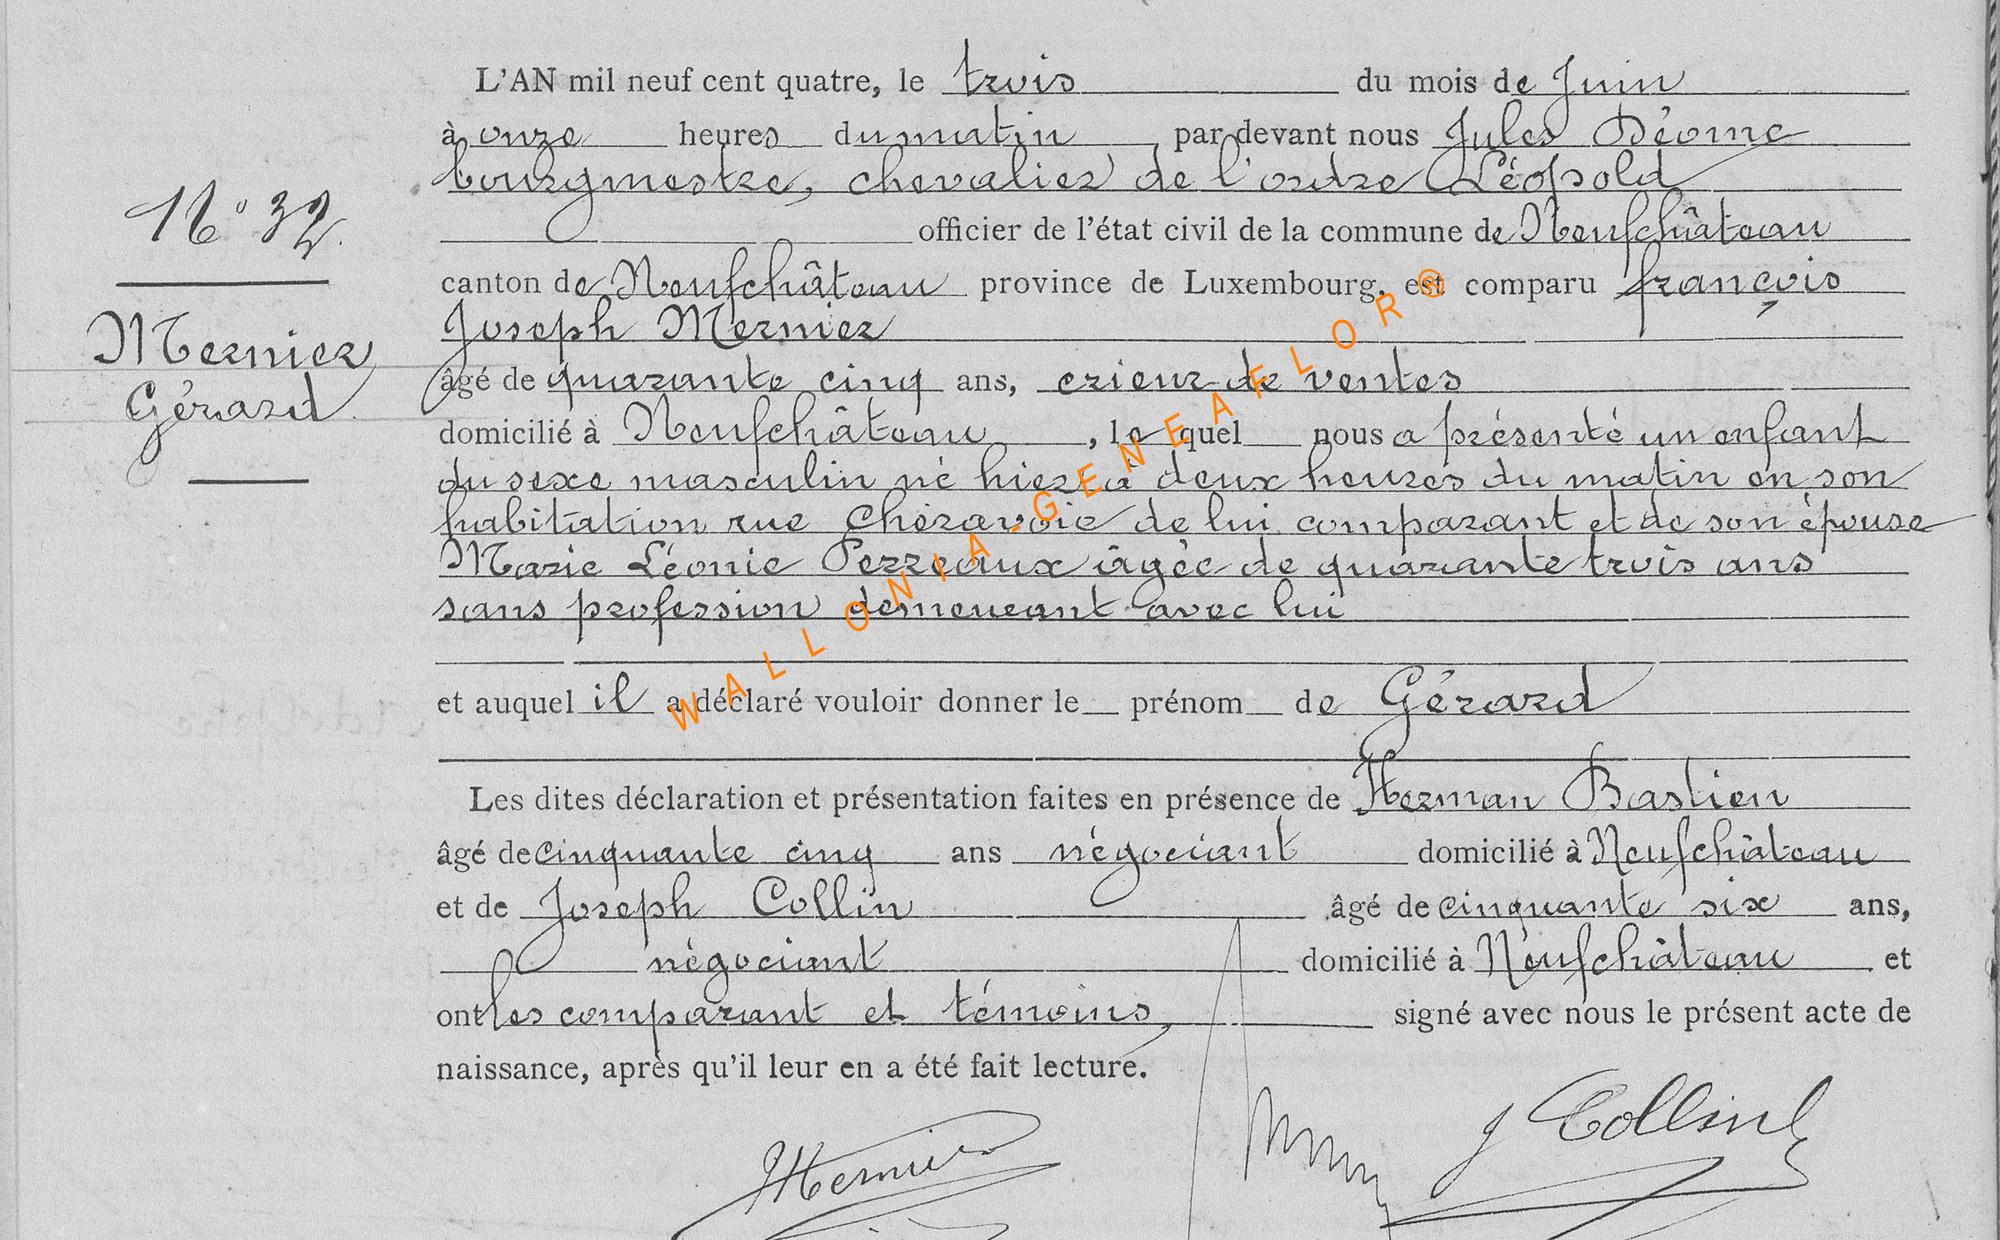 L'AN mil neuf cent quatre, le trois du mois de Juin
à onze heures du matin par devant nous Jules Déome
bourgmestre, chevalier de l'ordre Léopold
N° 32.
officier de l'état civil de la commune de Neufchâteau
canton de Neufchâteau province de Luxembourg, est comparu françois
Joseph Mernier
Mernier
Gérard
âgé de quarante cinq ans, crieur de ventes
domicilié à Neufchâteau, le quel nous a présenté un enfant
du sexe masculin né hier à deux heures du matin en son
habitation rue Cheravoie de lui comparant et de son épouse
Marie Léonie Perreaux âgée de quarante trois ans
sans profession demeurant avec lui
et auquel il a déclaré vouloir donner le prénom de Gérard
Les dites déclaration et présentation faites en présence de Herman Bastien
âgé de cinquante cinq ans négociant domicilié à Neufchâteau
et de Joseph Collin âgé de cinquante six ans,
négociant domicilié à Neufchâteau et
ont les comparant et témoins, signé avec nous le présent acte de
naissance, après qu'il leur en a été fait lecture.
Mernier
J Collin
WALLONIA-GENEAFLOR®